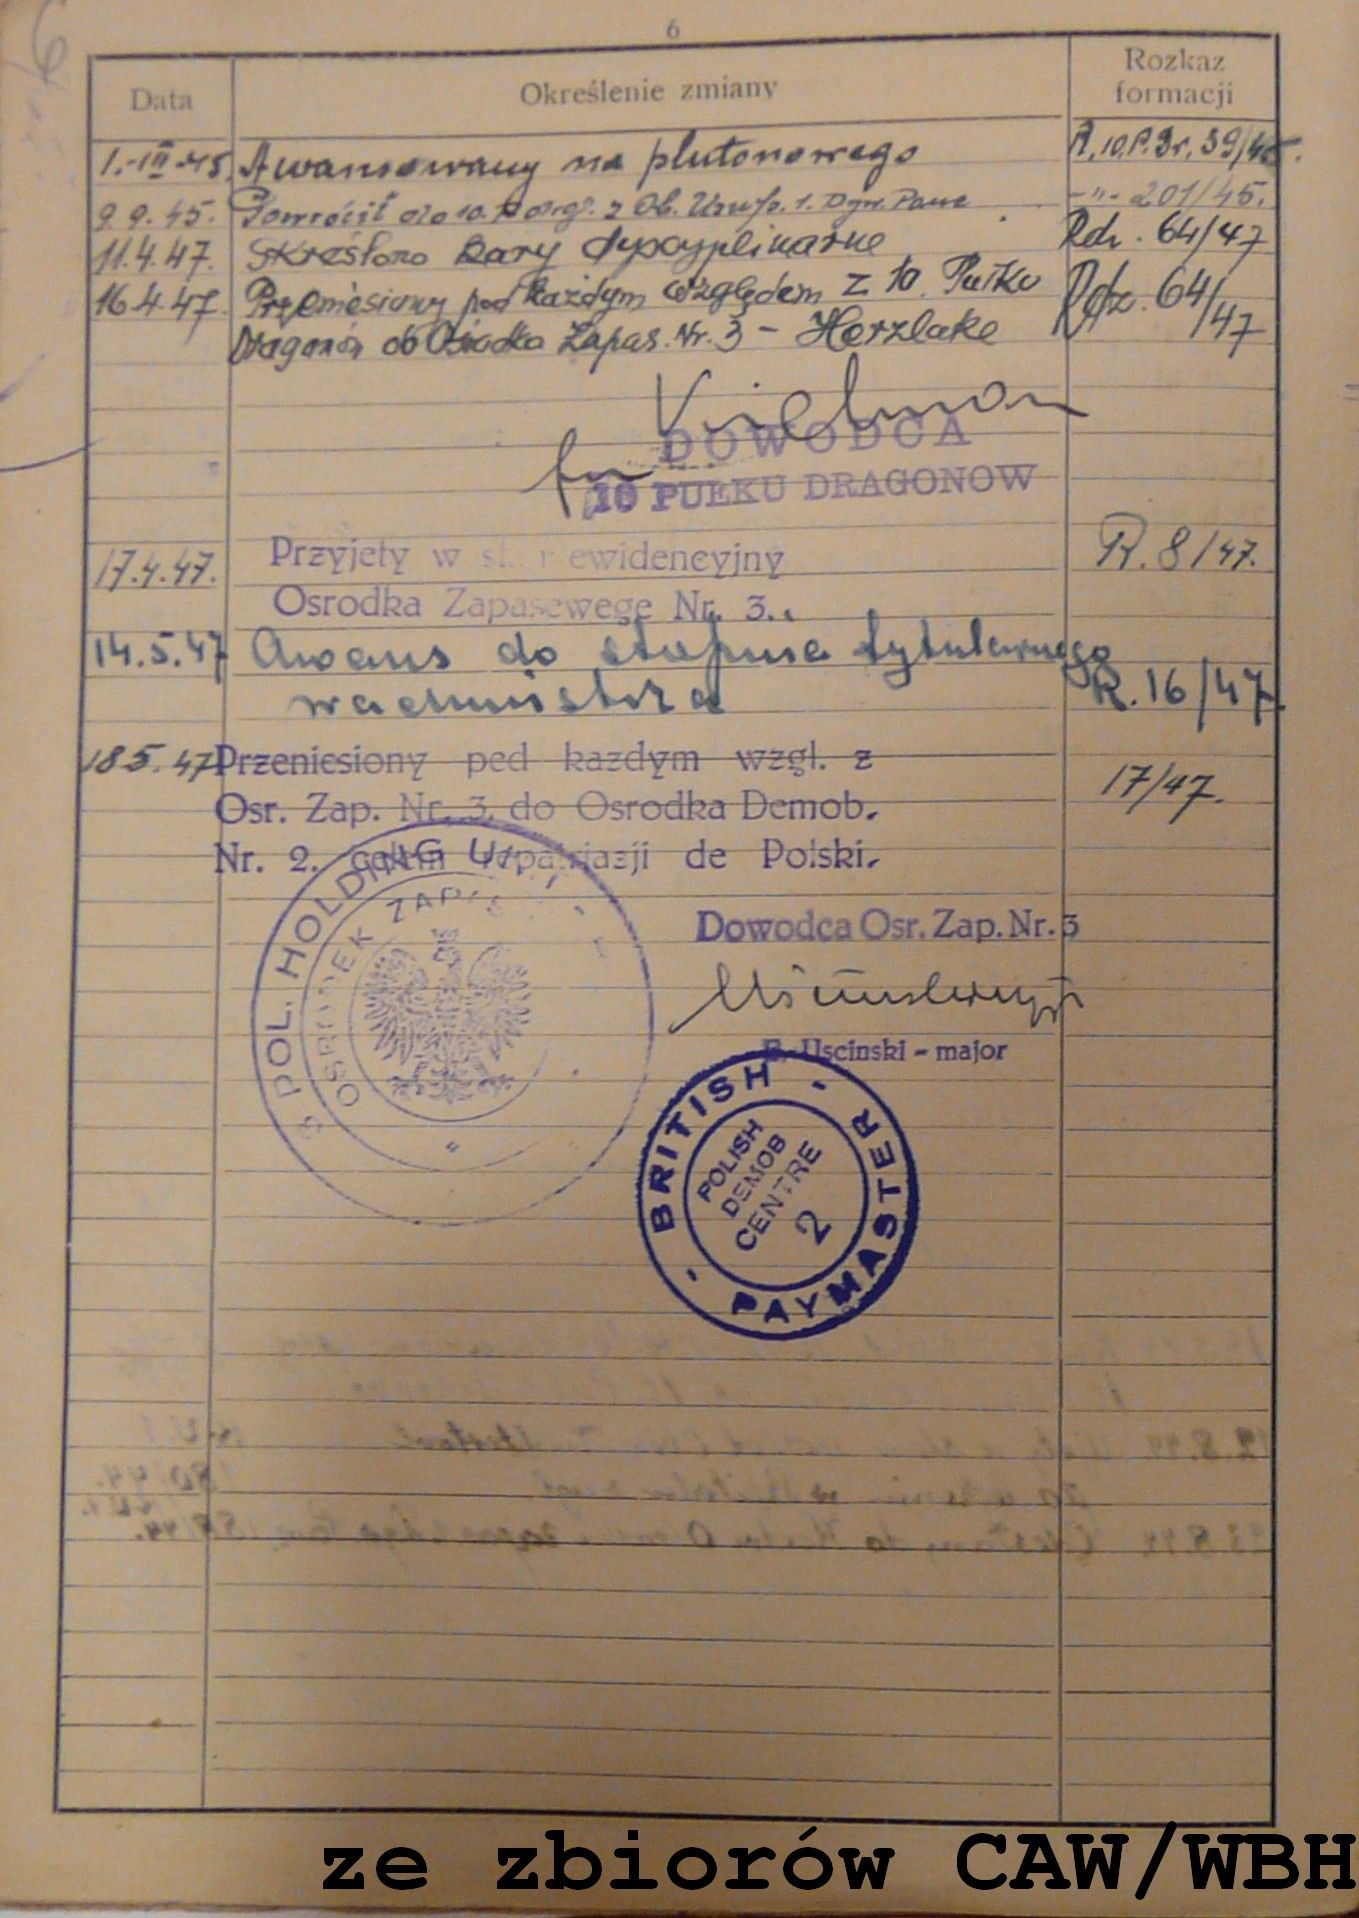 6
Data
Określenie zmiany
Rozkaz
formacji
1.-III-45. Awansowany na plutonowego R.10.P.Dr. 39/45.
9.9.45. Powrócił do 10. P. drag. z Ob. 1. Dyw. Panc -"- 201/45.
11.4.47. Skreślono kary dyscyplinarne Rdz. 64/47
16.4.47. Przeniesiony pod każdym względem z 10. Pułku Rdz. 64/47
Dragonów do Ośrodka Zapas. Nr. 3 - Herzlake
DOWODCA
10 PUŁKU DRAGONOW
17.4.47. Przyjety w stan ewidencyjny R. 8/47.
Osrodka Zapasowege Nr. 3.
14.5.47 Awans do stopnia tytularnego
wachmistrza R. 16/47
18 5. 47 Przeniesiony ped kazdym wzgl. z
Osr. Zap. Nr. 3. do Osrodka Demob. 17/47.
Nr. 2. celem repatrjazji de Polski.
3 POL. HOLDING UNIT
OSRODEK ZAPAS
Dowodca Osr. Zap. Nr. 3
E. Uscinski - major
- BRITISH -
PAYMASTER
POLISH
DEMOB
CENTRE
2
ze zbiorów CAW/WBH